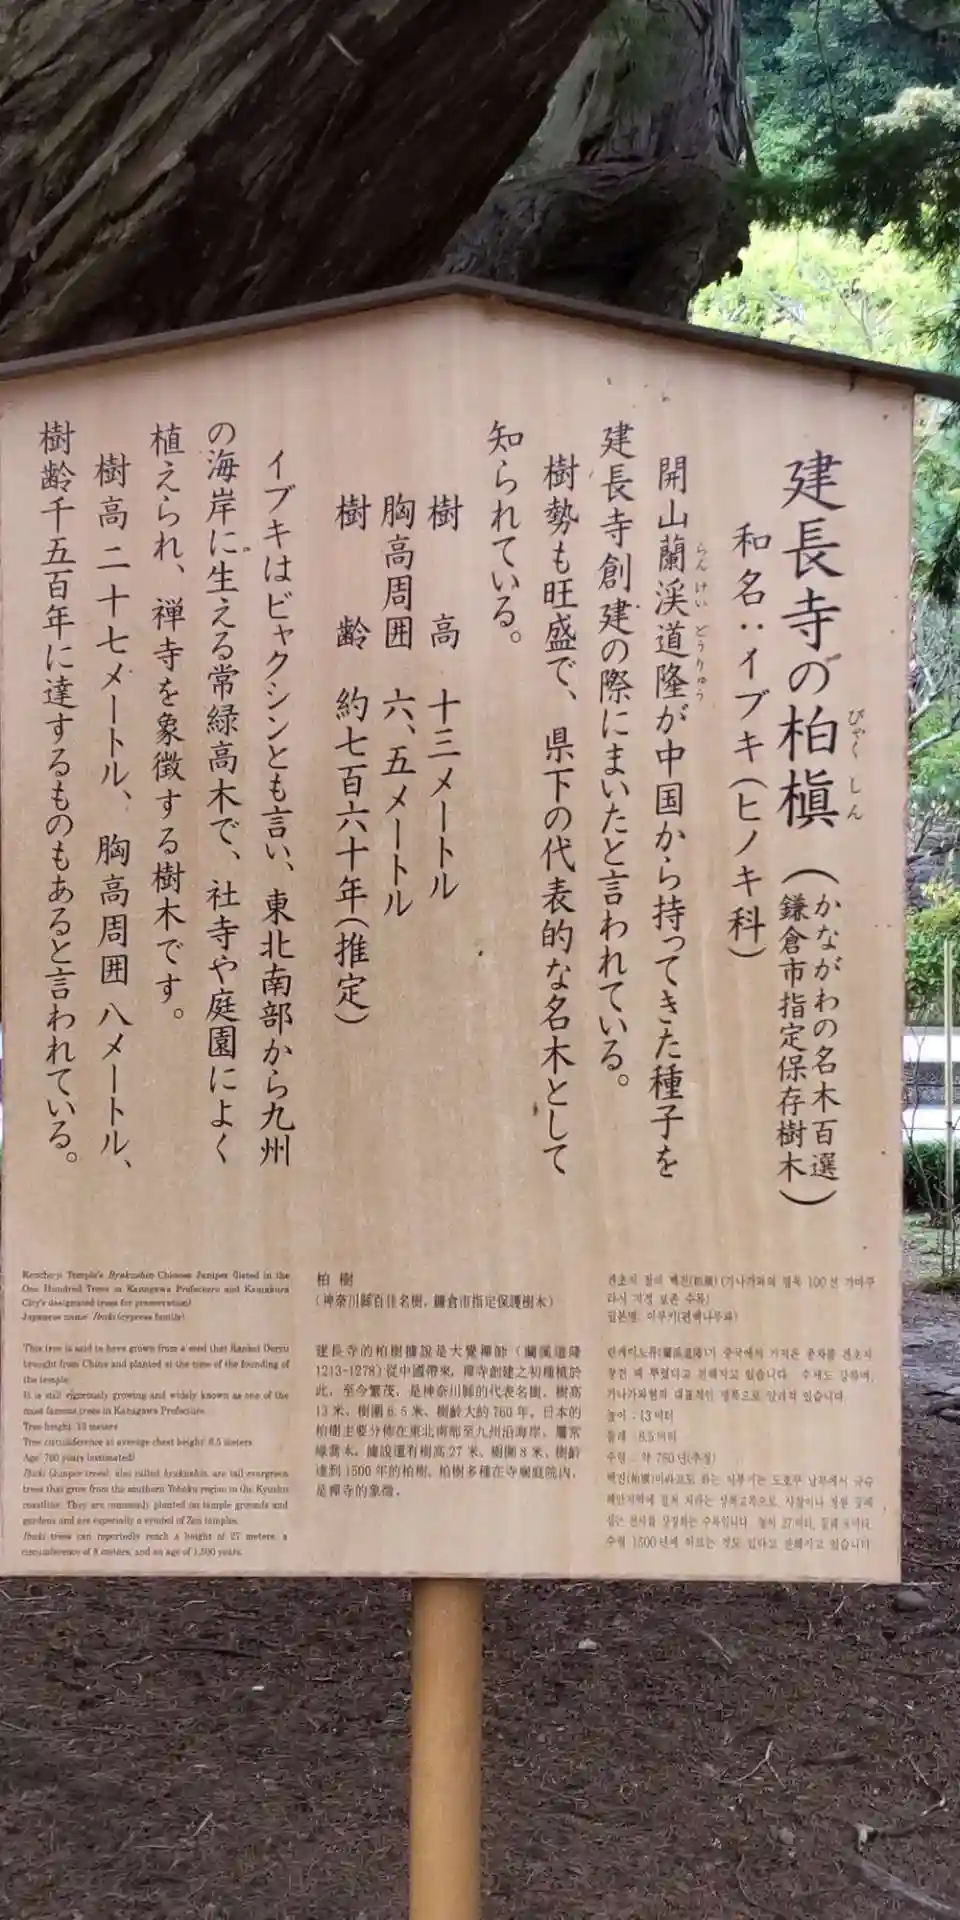 建長寺の柏槇（かながわの名木百選
鎌倉市指定保存樹木）
びゃくしん
和名：イブキ（ヒノキ科）
開山蘭渓道隆が中国から持ってきた種子を
らんけいどうりゅう
建長寺創建の際にまいたと言われている。
樹勢も旺盛で、県下の代表的な名木として
知られている。
樹高 十三メートル
胸高周囲 六、五メートル
樹齢 約七百六十年（推定）
イブキはビャクシンとも言い、東北南部から九州
の海岸に生える常緑高木で、社寺や庭園によく
植えられ、禅寺を象徴する樹木です。
樹高二十七メートル、胸高周囲八メートル、
樹齢千五百年に達するものもあると言われている。
Kencho-ji Temple's Byakushin Chinese Juniper (listed in the
One Hundred Trees in Kanagawa Prefecture and Kamakura
City's designated trees for preservation)
Japanese name: Ibuki (cypress family)
This tree is said to have grown from a seed that Rankei Doryu
brought from China and planted at the time of the founding of
the temple.
It is still vigorously growing and widely known as one of the
most famous trees in Kanagawa Prefecture.
Tree height: 13 meters
Tree circumference at average chest height: 6.5 meters
Age: 760 years (estimated)
Ibuki (Juniper trees), also called byakushin, are tall evergreen
trees that grow from the southern Tohoku region to the Kyushu
coastline. They are commonly planted on temple grounds and
gardens and are especially a symbol of Zen temples.
Ibuki trees can reportedly reach a height of 27 meters, a
circumference of 8 meters, and an age of 1,500 years.
柏樹
（神奈川縣百佳名樹，鎌倉市指定保護樹木）
建長寺的柏樹據說是大覺禪師（蘭溪道隆
1213-1278）從中國帶來，禪寺創建之初種植於
此，至今繁茂，是神奈川縣的代表名樹，樹高
13米、樹圍6.5米、樹齡大約760年。日本的
柏樹主要分佈在東北南部至九州沿海岸，屬常
綠喬木，據說還有樹高27米、樹圍8米、樹齡
達到1500年的柏樹。柏樹多種在寺廟庭院內，
是禪寺的象徵。
겐초지 절의 백진(柏槇) (가나가와의 명목 100선 가마쿠
라시 지정 보존 수목)
일본명: 이부키(편백나무과)
란케이도류(蘭渓道隆)가 중국에서 가져온 종자를 겐초지
창건 때 뿌렸다고 전해지고 있습니다. 수세도 강하며,
가나가와현의 대표적인 명목으로 알려져 있습니다.
높이 : 13미터
둘레 : 6.5미터
수령 : 약 760년(추정)
백진(柏槇)이라고도 하는 이부키는 도호쿠 남부에서 규슈
해안지역에 걸쳐 자라는 상록고목으로, 사찰이나 정원 등에
심는 선사를 상징하는 수목입니다. 높이 27미터, 둘레 8미터,
수령 1500년에 이르는 것도 있다고 전해지고 있습니다.